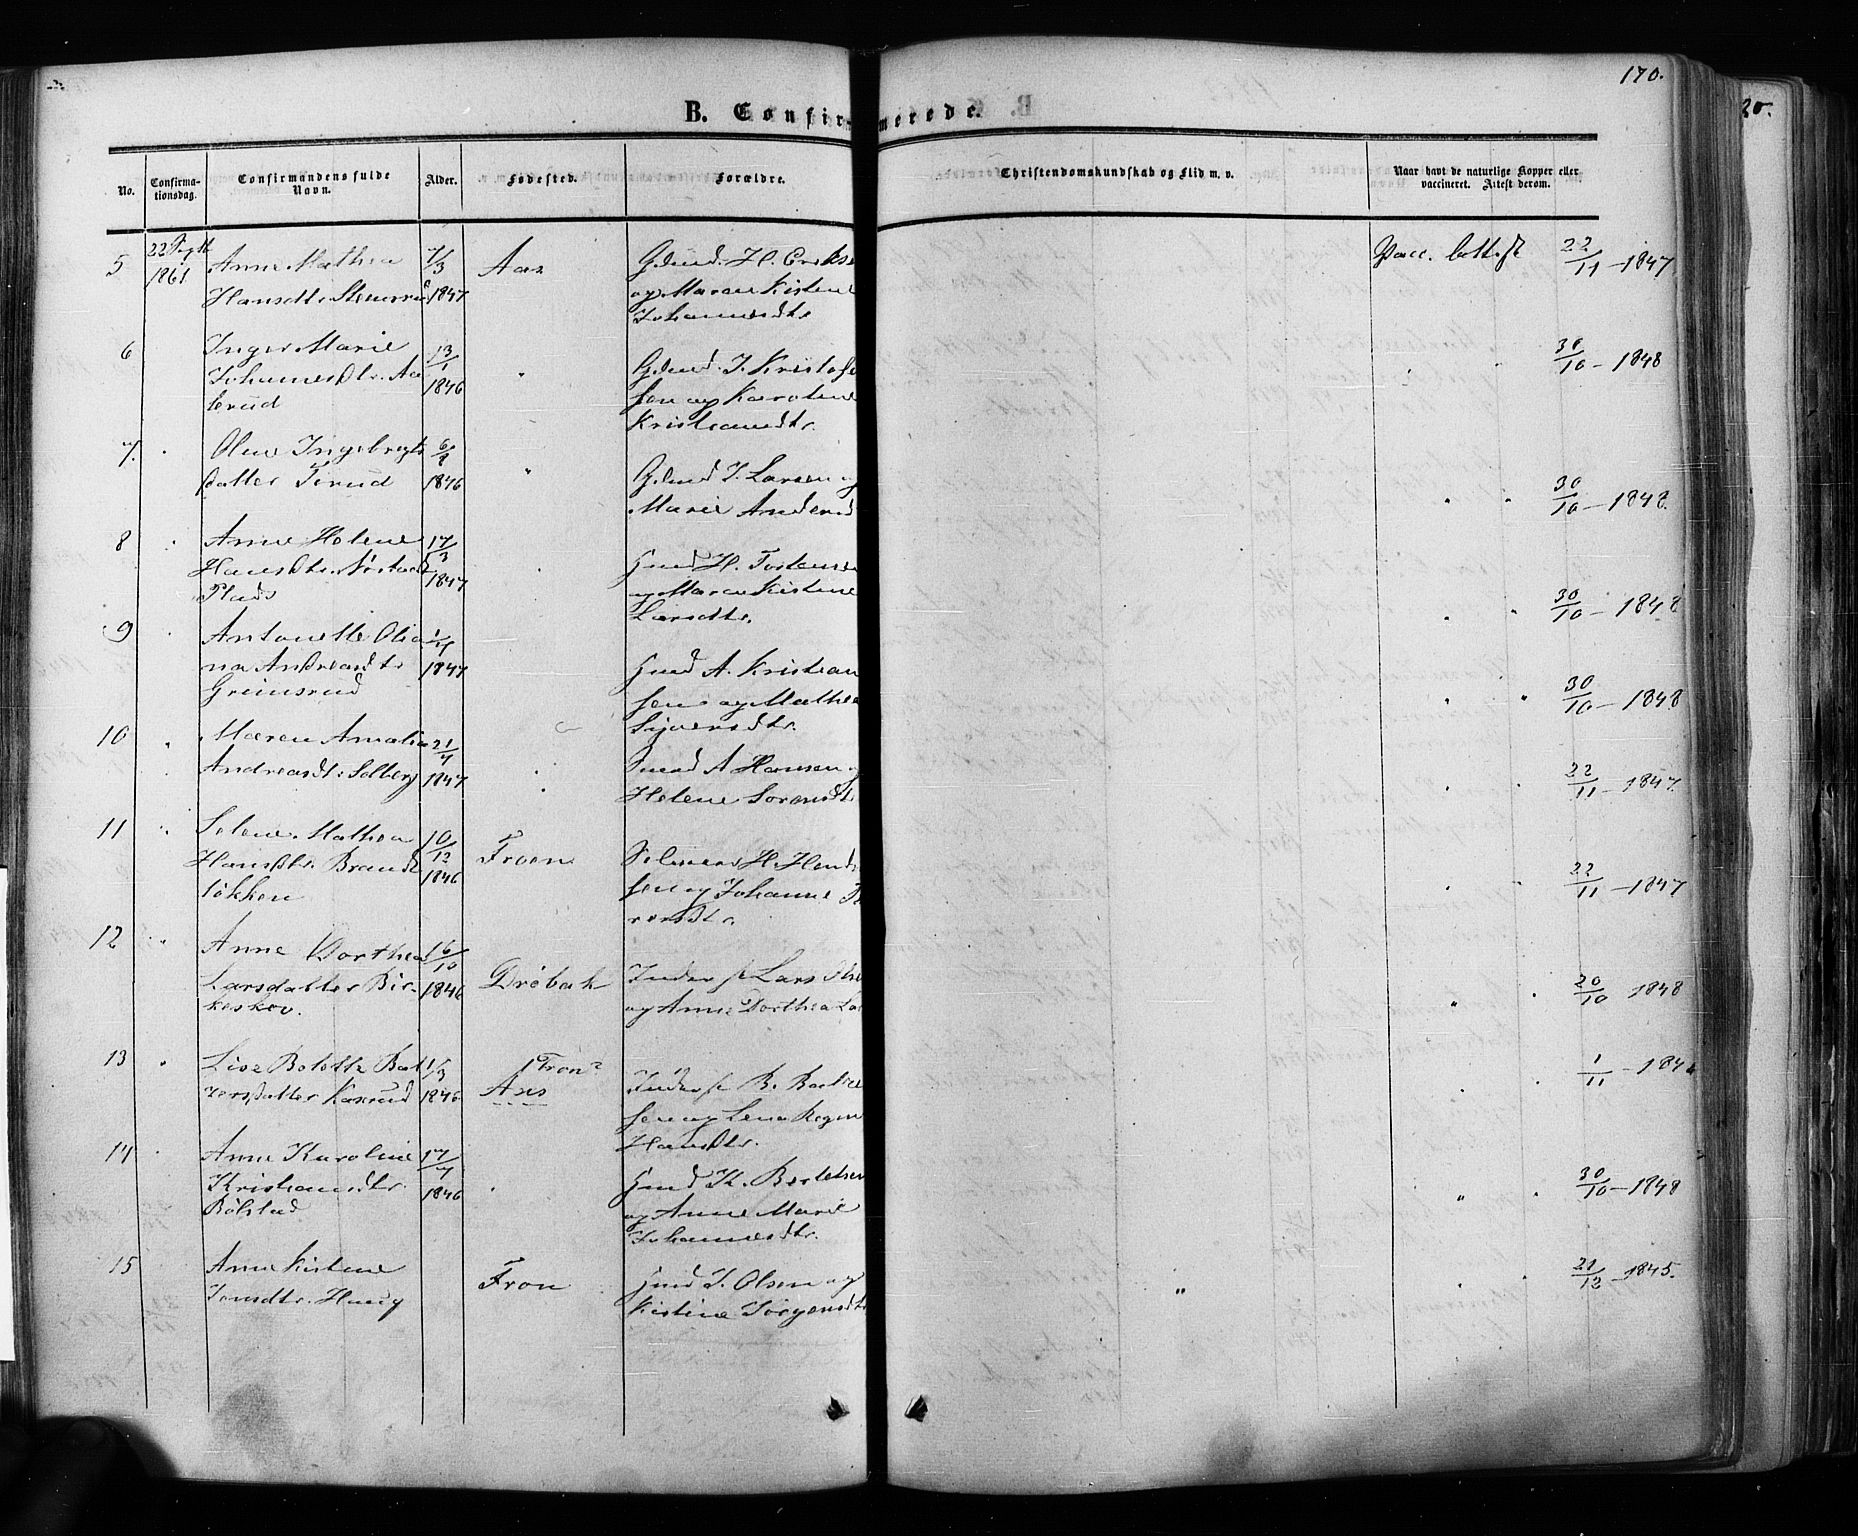 170.
20.
B. Confirmerede.
No.
Confirma-
tionsdag.
Confirmandens fulde
Navn.
Alder.
Fødested.
Forældre.
Christendomskundskab og Flid m. v.
Naar havt de naturlige Kopper eller
vaccineret. Attest derom.
5
22 Septb
1861
Anne Mathea
Hansdtr Stenerud
7/3
1847
Aas
Gdmd. H. Eriks
og Maren Kistine
Johannesdtr
Vacc.
22/11 - 1847
6
Inger Marie
Johannesdtr. Aa
lerud
13/1
1846
"
Gdmd. J. Kristofe
sen og Karoline
Kristiansdtr.
30/10 - 1848
7.
Oline Ingebregts
datter Terud
6/8
1846
"
Gdmd J. Larsen og
Marie Andersd
" " 30/10 - 1848.
8
Anne Helene
Hansdtr. Nøstad
Plads
17/3
1847
Hmd H. Torstense
og Maren Kistine
Larsdtr.
" " 30/10 - 1848
9
Antonette Olia
na Andreasdtr
Greimsrud
1/4
1847
Hmd A. Kristian
sen og Mathea
Syversdtr.
" " 30/10 - 1848
10
Maren Amalia
Andreasdtr. Solberg
21/4
1847
Smed A Hansen og
Helene Sørensdt
" " 22/11 - 1847.
11
Selene Mathea
Hansdtr. Brandt
løkken
10/12
1846
Froen
Selveier H. Hend
sen og Johanne
versdtr.
" " 22/11 - 1847
12
Anne Dorthea
Larsdatter Bir-
keskov.
16/10
1846
Drøbak
Inderst Lars Olse
og Anne Dorthea La
" " 20/10 - 1848
13
Lise Bolette Bal
zersdatter Kaxrud
1/3
1846
Fron?
Aas
Inderst B. Baltze
sen og Lena Regin
Hansdtr.
" " 1/11 - 184
14
Anne Karoline
Kristiansdtr.
Bølstad
17/7
1846
Hmd K. Bertelsen
og Anne Marie
Johannesdtr.
" " 30/10 - 1848
15
Anne Kistine
Jensdtr. Haug
Fron
Hmd J. Olsen og
Kistine Jørgensdtr
" " " 21/12 - 1845.